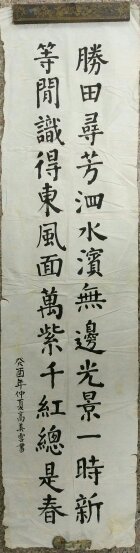 勝田尋芳泗水濱無邊光景一時新
等閒識得東風面萬紫千紅總是春
癸酉年仲夏高美雲書